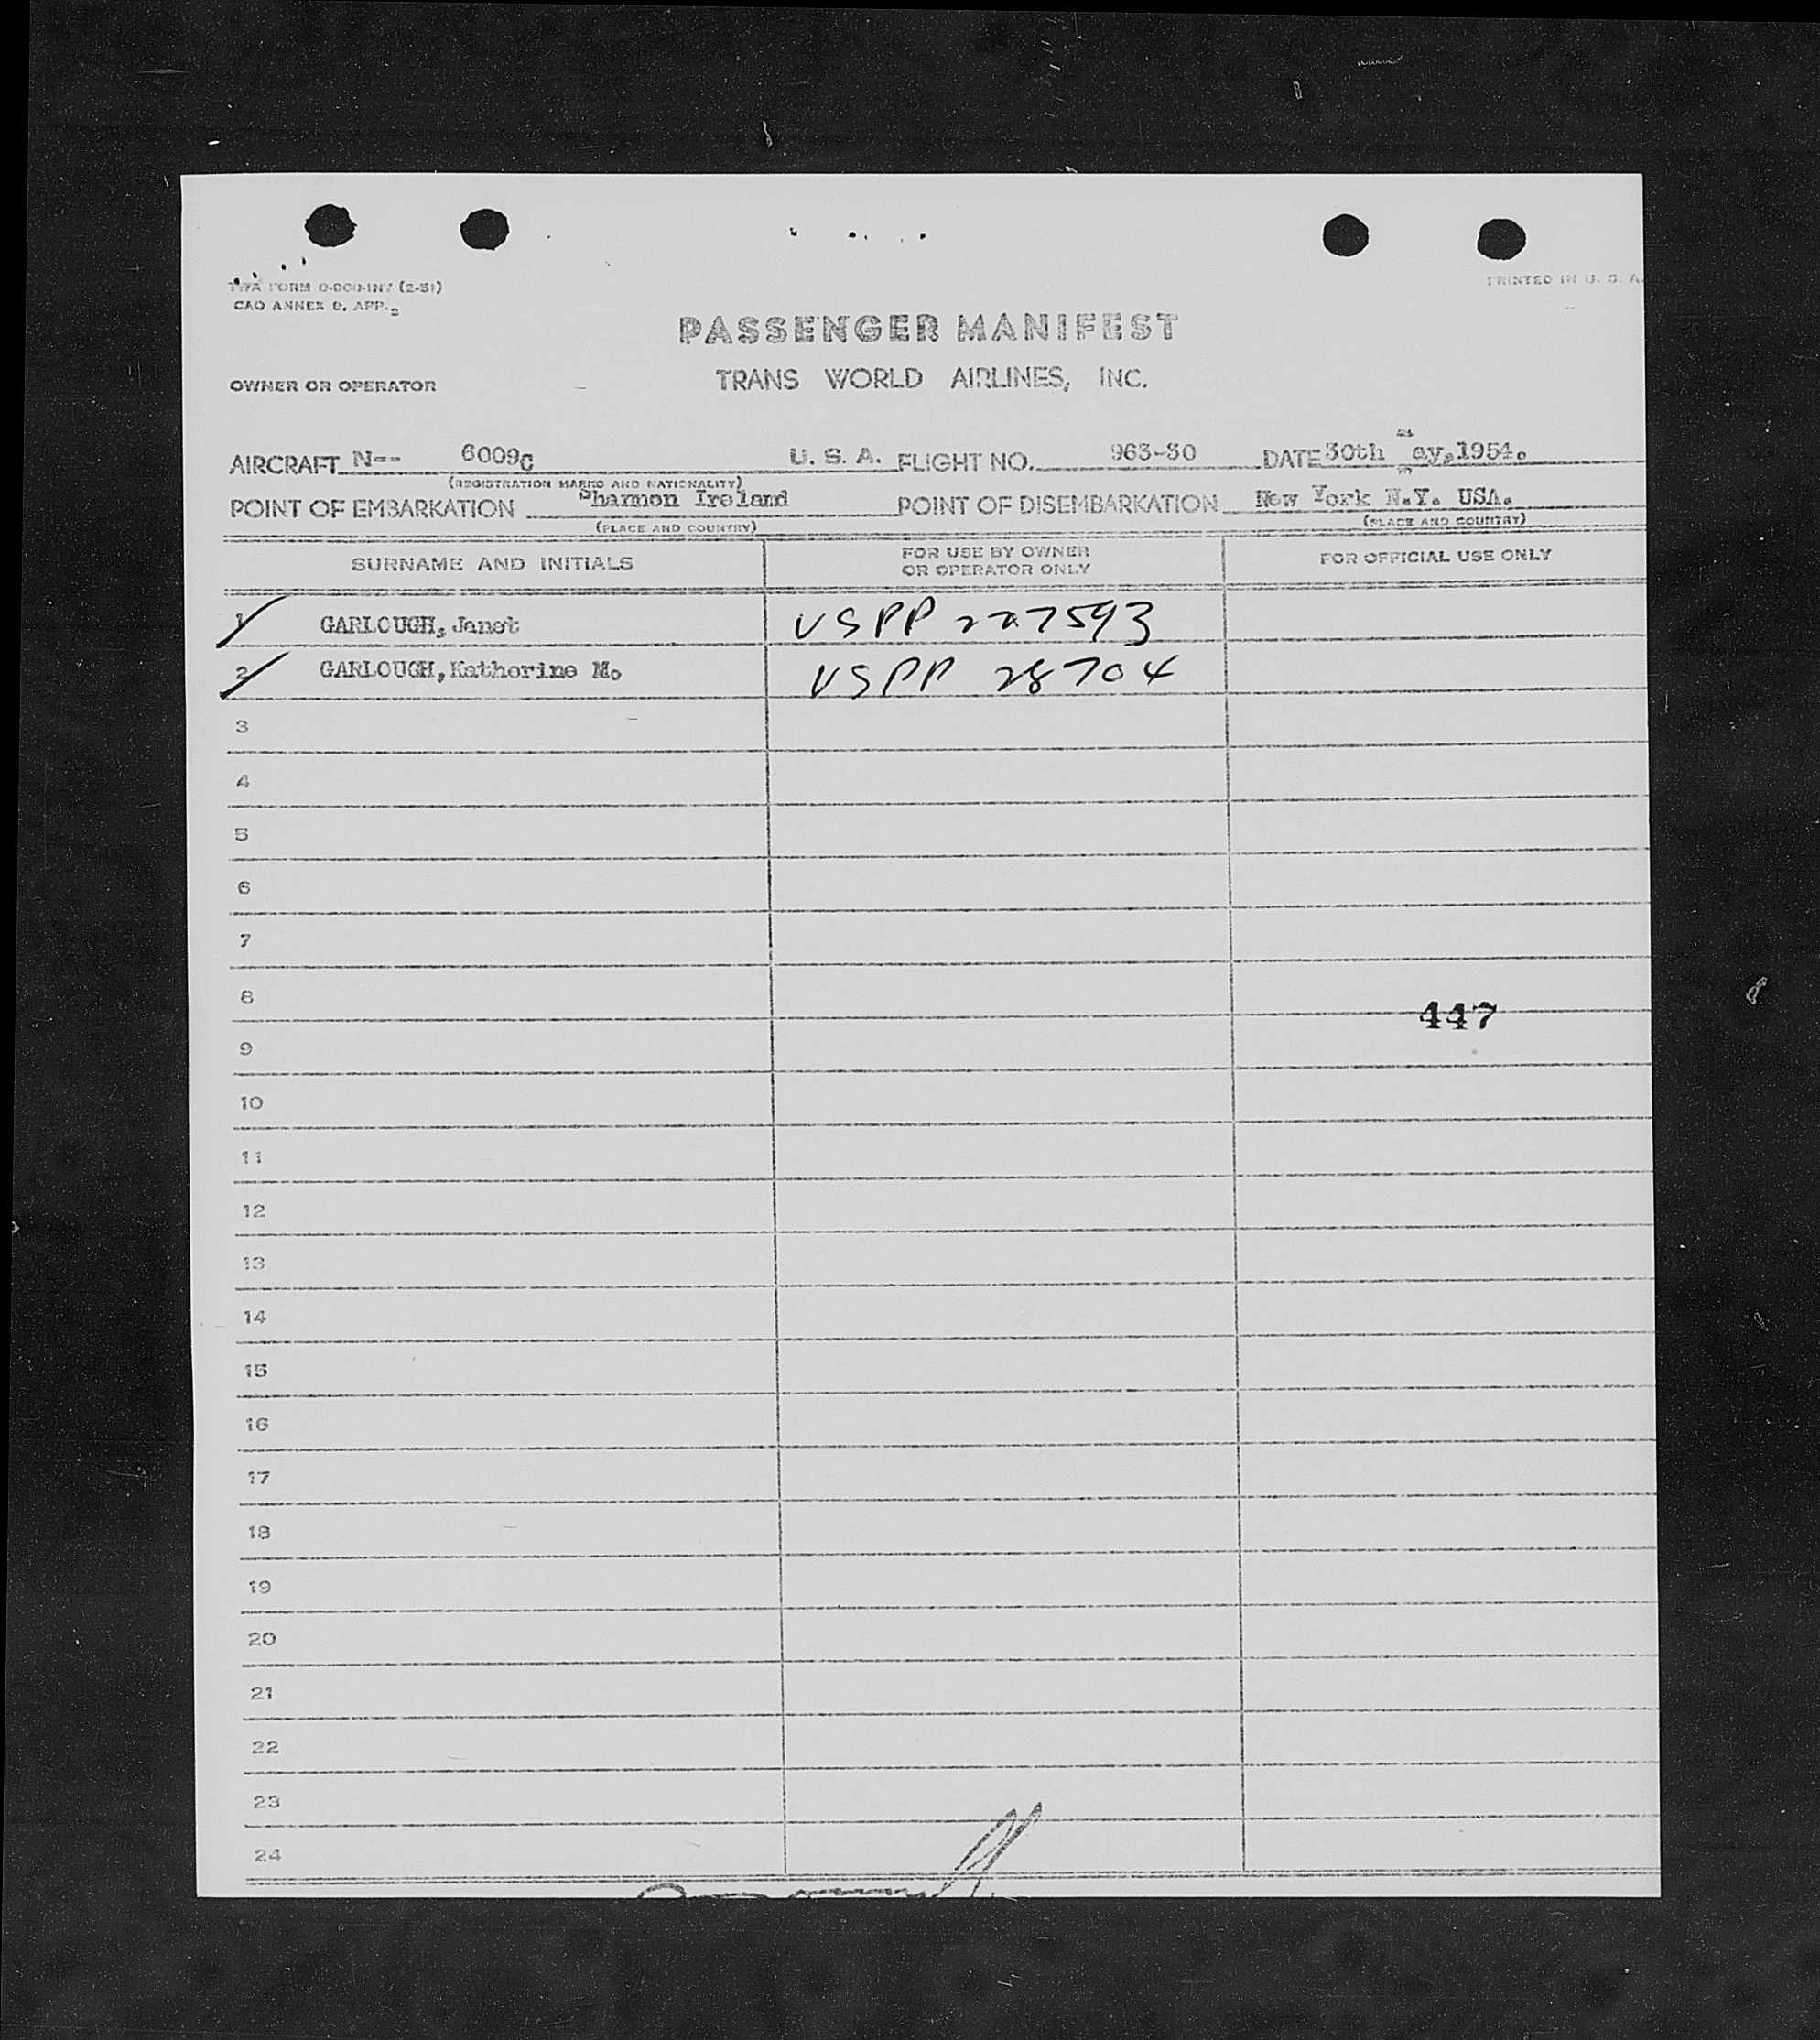 TWA FORM O-800-INT (2-51)
PRINTED IN U. S. A.
CAO ANNEX 9, APP. 2
PASSENGER MANIFEST
OWNER OR OPERATOR
TRANS WORLD AIRLINES, INC.
AIRCRAFT N-- 6009C U. S. A. FLIGHT NO. 963-30 DATE 30th May,1954.
(REGISTRATION MARKS AND NATIONALITY)
POINT OF EMBARKATION Shannon Ireland POINT OF DISEMBARKATION New York N.Y. USA.
(PLACE AND COUNTRY) (PLACE AND COUNTRY)
SURNAME AND INITIALS FOR USE BY OWNER OR OPERATOR ONLY FOR OFFICIAL USE ONLY
1 GARLOUGH, Janet USPP 227593
2 GARLOUGH, Katherine M. USPP 28704
3
4
5
6
7
8
447
9
10
11
12
13
14
15
16
17
18
19
20
21
22
23
24